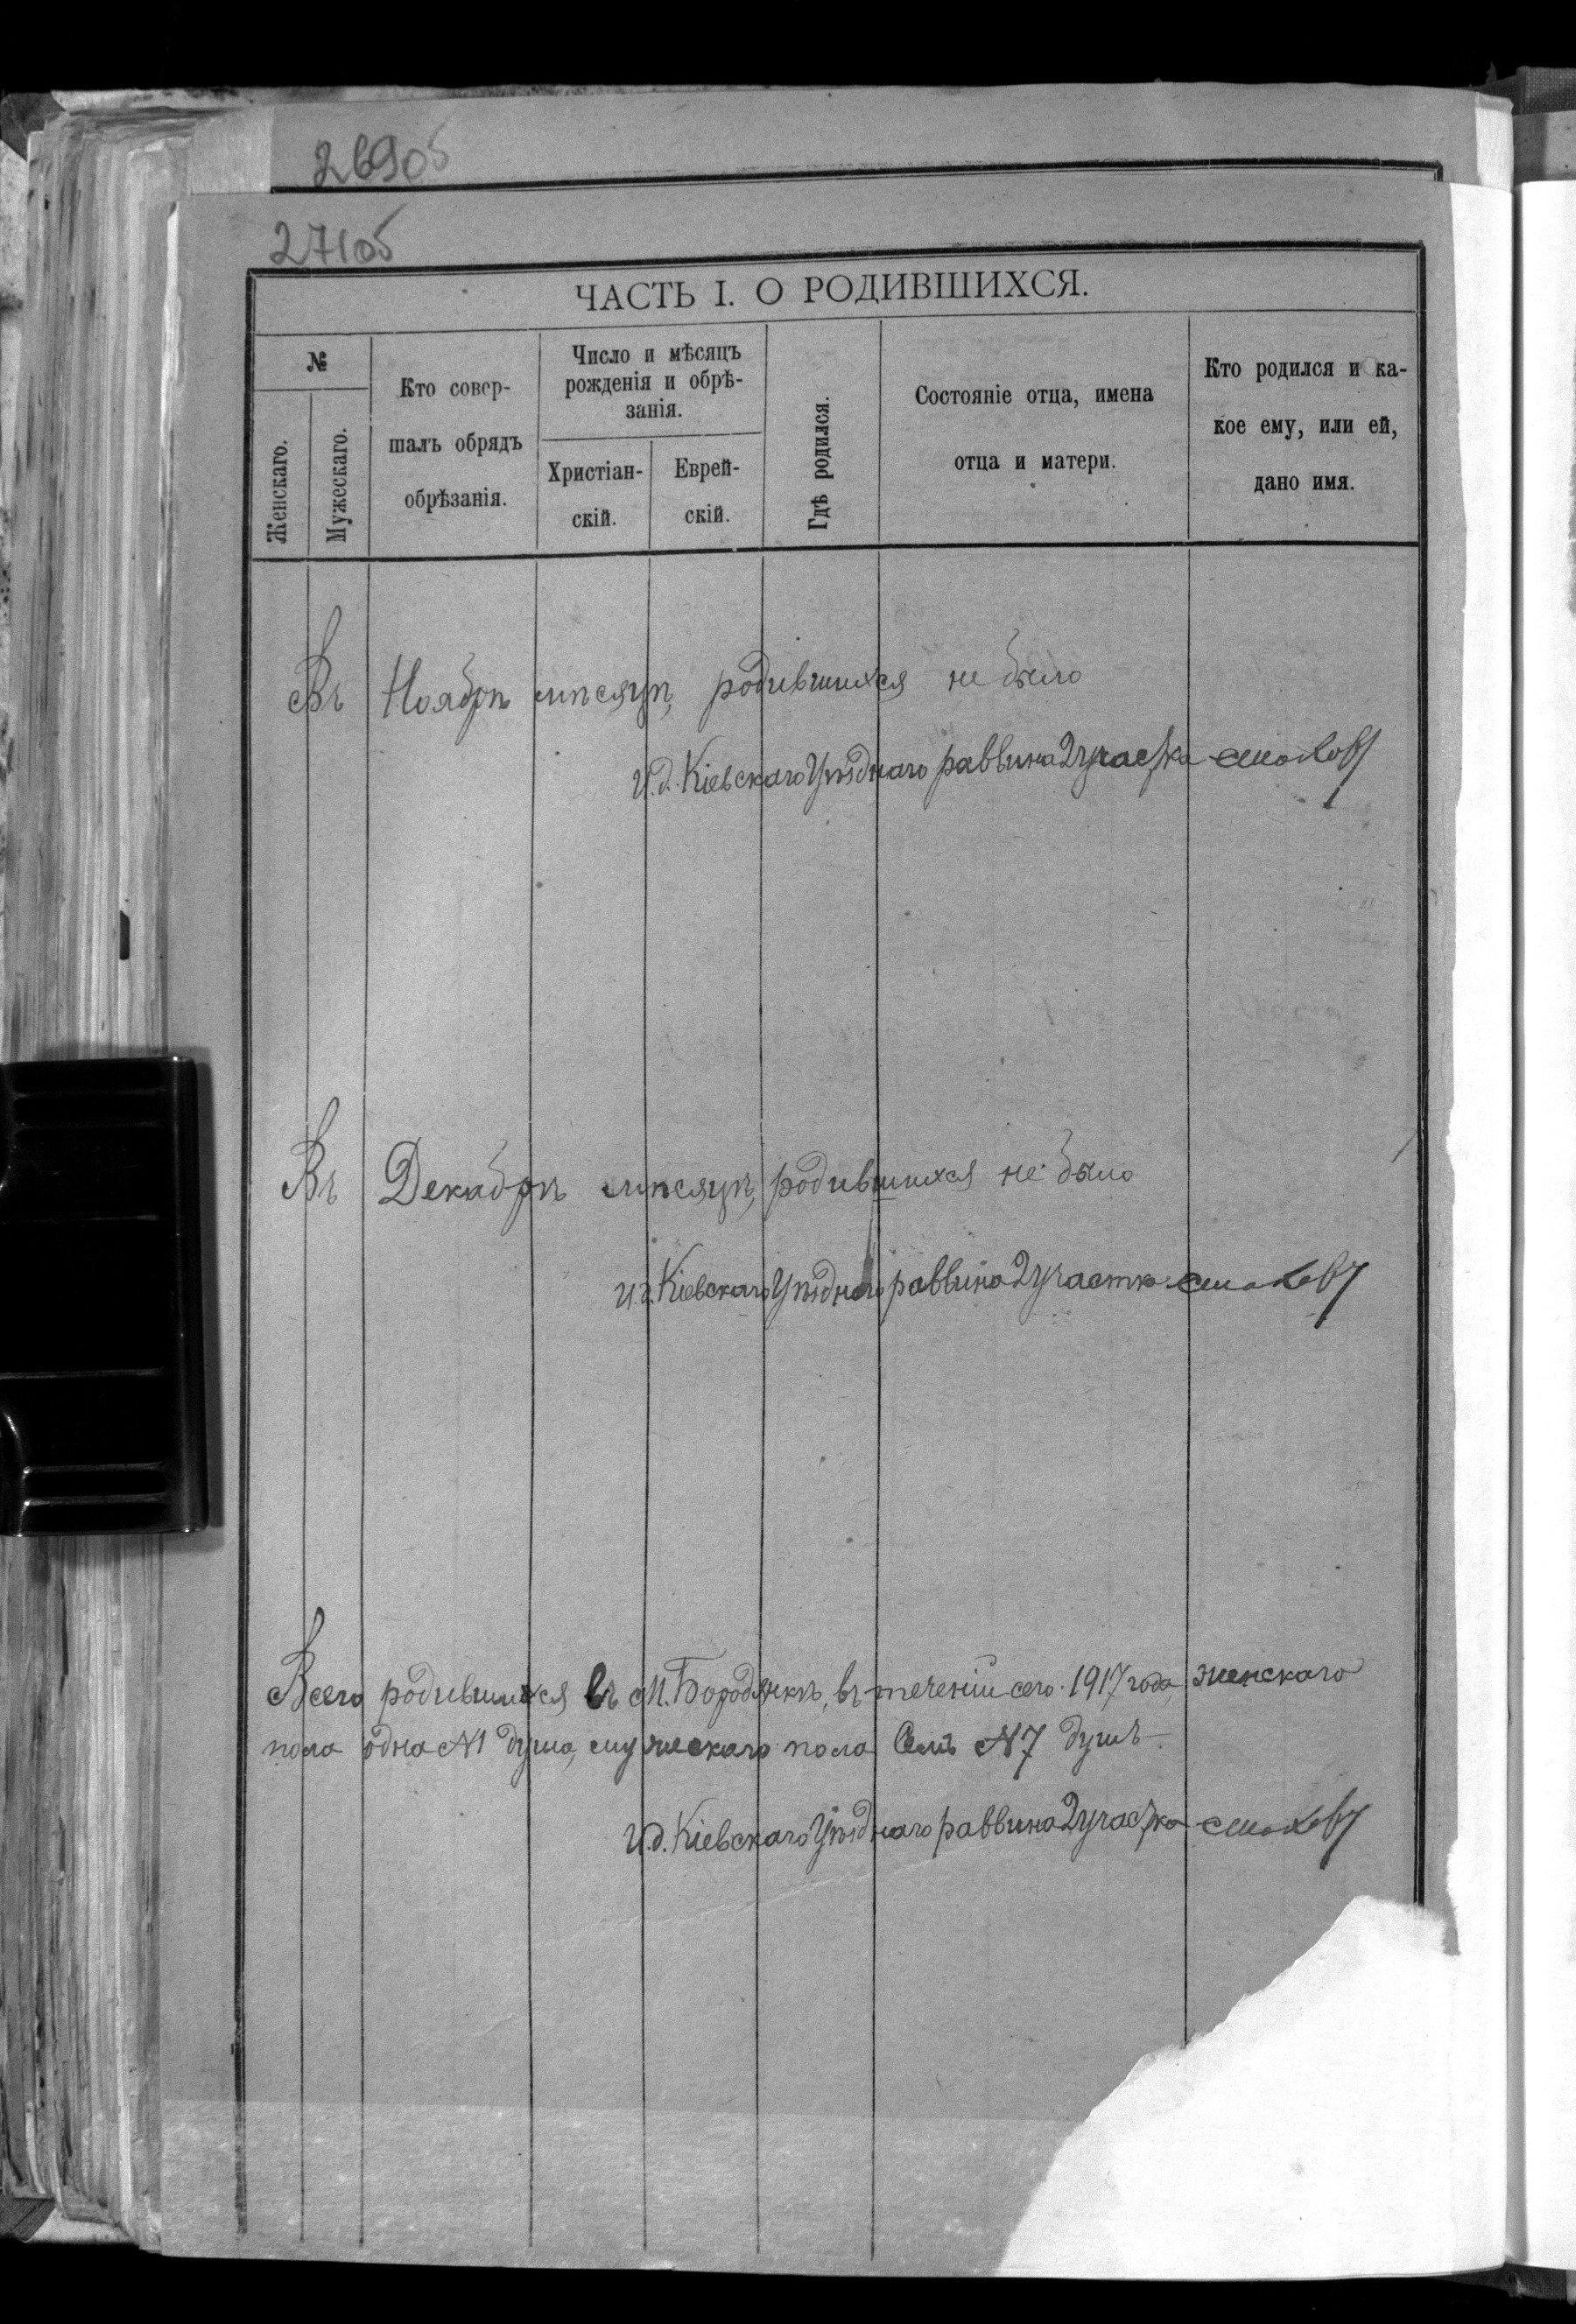 269об
271об
ЧАСТЬ I. О РОДИВШИХСЯ.
№
Женскаго.
Мужескаго.
Кто совер-
шалъ обрядъ
обрѣзанія.
Число и мѣсяцъ
рожденія и обрѣ-
занія.
Христіан-
скій.
Еврей-
скій.
Гдѣ родился.
Состояніе отца, имена
отца и матери.
Кто родился и ка-
кое ему, или ей,
дано имя.
Въ Ноябрѣ мѣсяцѣ, родившихся не было
И.д. Кіевскаго Уѣзднаго раввина 2 участка
Въ Декабрѣ мѣсяцѣ, родившихся не было
И.д. Кіевскаго Уѣзднаго раввина 2 участка
Всего родившихся въ М. Бородянкѣ, въ теченіи сего 1917 года, женскаго
пола одна №1 душа, мужескаго пола Семь №7 душъ.
И.д. Кіевскаго Уѣзднаго раввина 2 участка